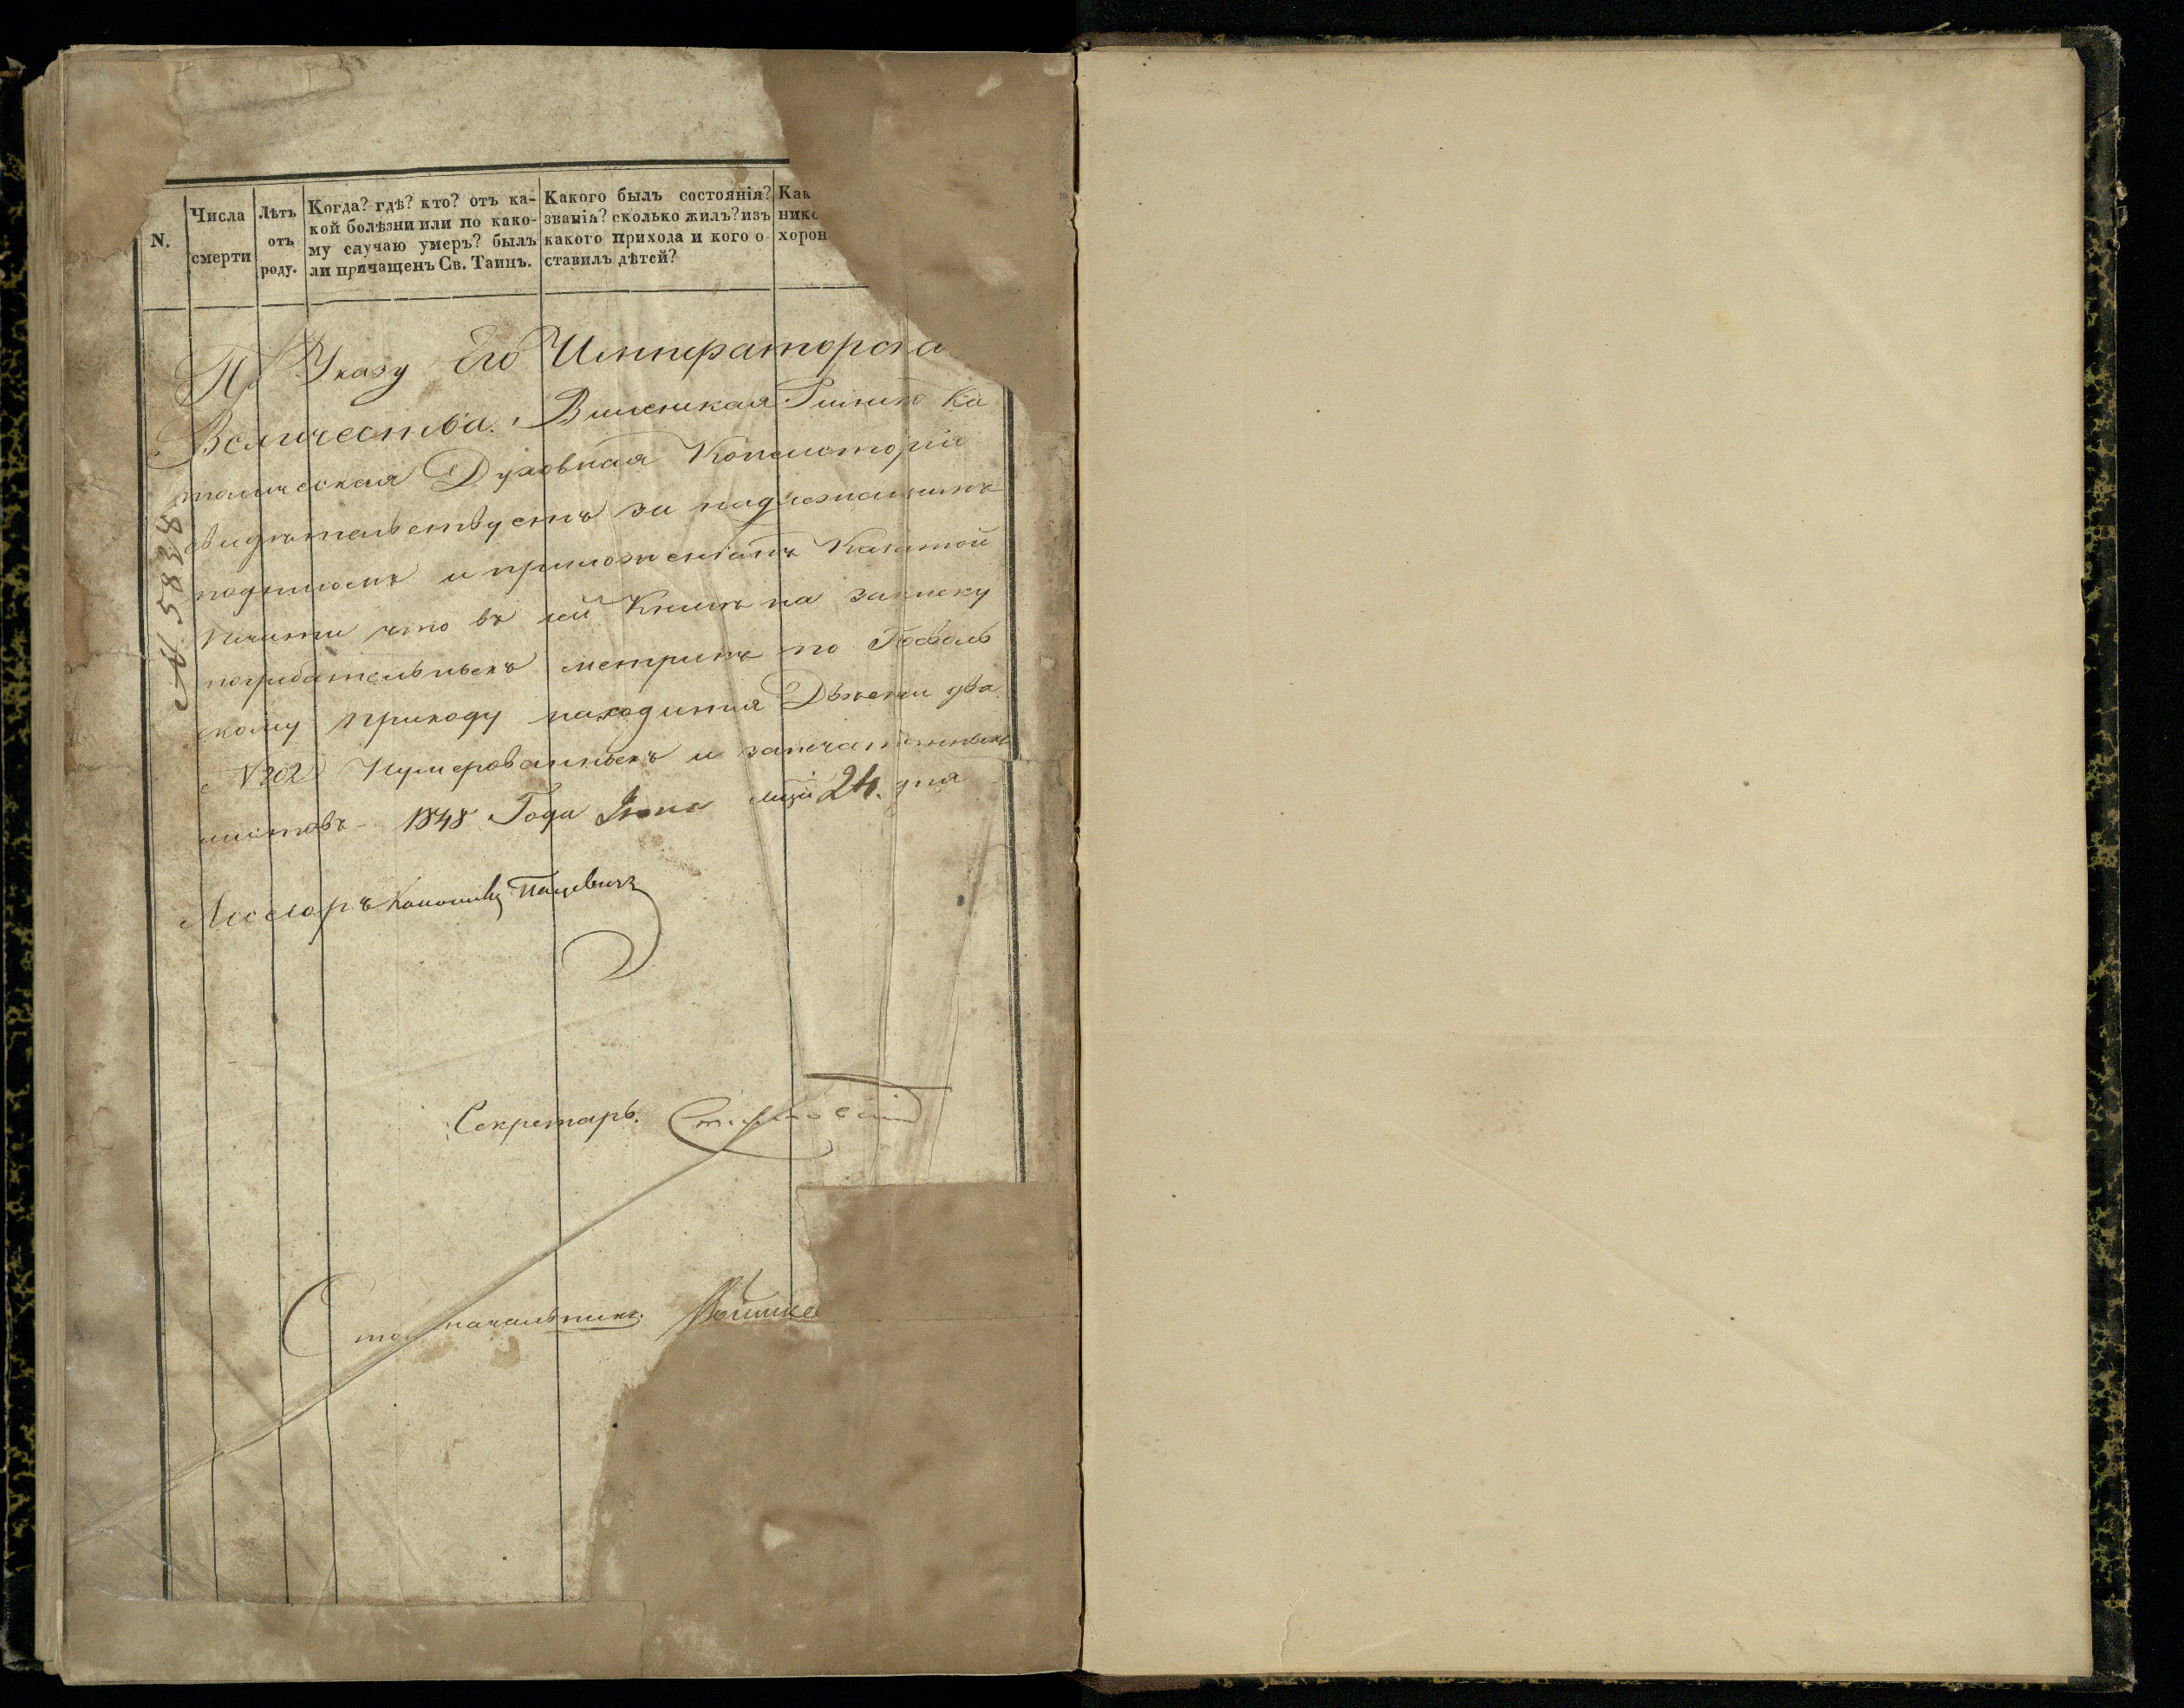 N.
Числа
смерти
Лѣтъ
отъ
роду.
Когда? гдѣ? кто? отъ ка-
кой болѣзни или по како-
му случаю умеръ? былъ
ли причащенъ Св. Таинъ.
Какого былъ состоянія?
званія? сколько жилъ? изъ
какого прихода и кого о-
ставилъ дѣтей?
Как
нико
хорон
По Указу Его Императорска
Величества. Виленская Римско Ка
толическая Духовная Консисторія
свидѣтельствуетъ за надлежащимъ
подписомъ и приложеніемъ Казенной
Печати что въ сей Книгѣ на записку
погребательныхъ метрикъ по
скому приходу находится Двѣсти два
N 202 Нумерованныхъ и запечатанныхъ
листовъ - 1848 Года мца 24. дня
N. 5838
Ассесоръ Каноникъ
Секретарь.
Столоначальникъ.